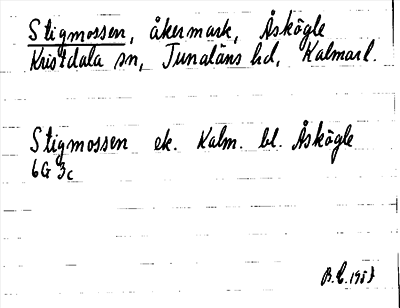 Stigmossen, åkermark, Åskögle
Kristdala sn, Tunaläns hd, Kalmarl.
Stigmossen ek. Kalm. bl. Åskögle
6G 3c